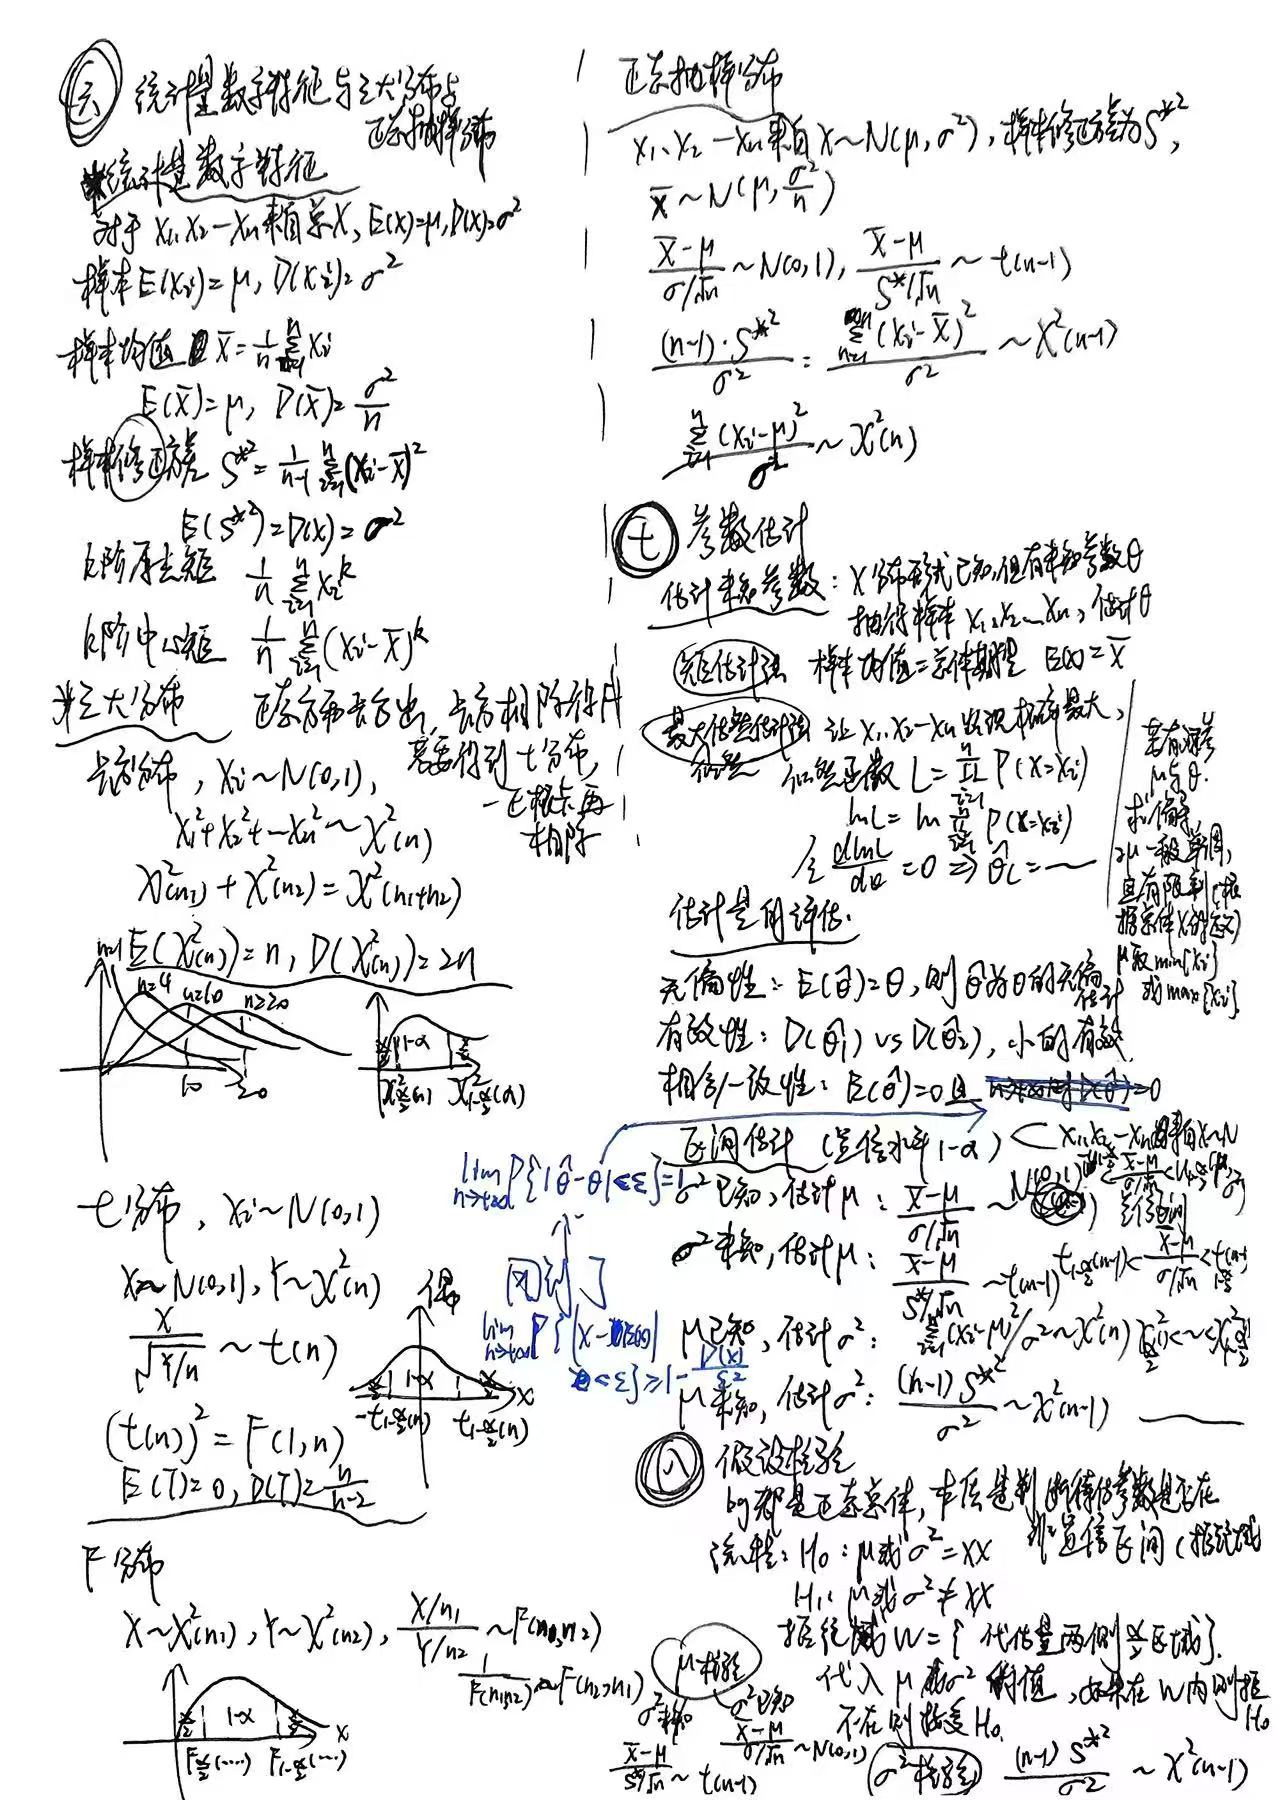 六 统计量数字特征与三大分布与
正态抽样分布
统计量数字特征
对于 X₁, X₂ — Xₙ 来自总X, E(X)=μ, D(X)=σ²
样本 E(Xi)=μ, D(Xi)=σ²
样本均值 X̄ = 1/n Σ(i=1..n) Xi
E(X̄)=μ, D(X̄)=σ²/n
样本修正方差 S*² = 1/(n-1) Σ(i=1..n) (Xi-X̄)²
E(S*²)=D(X)=σ²
k阶原点矩 1/n Σ(i=1..n) Xi^k
k阶中心矩 1/n Σ(i=1..n) (Xi-X̄)^k
三大分布 正态方布去方出, 卡方相除得F
需要得到t分布,
一正根卡再
相除
卡方分布, Xi~N(0,1),
X₁²+X₂²+—Xₙ²~χ²(n)
χ²(n₁)+χ²(n₂)=χ²(n₁+n₂)
E(χ²(n))=n, D(χ²(n))=2n
n=1 n=4 n=10 n≥20
10 20
α/2 1-α α/2
χ²α/2(n) χ²1-α/2(n)
t分布, Xi~N(0,1)
X~N(0,1), Y~χ²(n) 偶
X/√(Y/n) ~ t(n)
α/2 1-α α/2 x
-t1-α/2(n) t1-α/2(n)
(t(n))² = F(1,n)
E(T)=0, D(T)=n/(n-2)
F分布
X~χ²(n₁), Y~χ²(n₂), (X/n₁)/(Y/n₂) ~F(n₁,n₂)
1/F(n₁,n₂) ~ F(n₂,n₁)
α/2 1-α α/2 x
Fα/2(....) F1-α/2(....)
正态抽样分布
X₁, X₂ — Xₙ 来自 X~N(μ,σ²), 样本修正方差为S*²,
X̄~N(μ, σ²/n)
(X̄-μ)/(σ/√n) ~N(0,1), (X̄-μ)/(S*/√n) ~ t(n-1)
(n-1)·S*²/σ² = Σ(n=1..n) (Xi-X̄)²/σ² ~χ²(n-1)
Σ(i=1..n) (Xi-μ)²/σ² ~ χ²(n)
七 参数估计
估计未知参数: X分布形式已知,但有未知参数θ
抽得样本 X₁,X₂—Xₙ, 估计θ
矩估计法 样本均值=总体期望 E(X)=X̄
最大似然估计法 让X₁,X₂—Xₙ出现概率最大,
似然 似然函数 L=Π(i=1..n) P(X=Xi)
lnL = ln Π(i=1..n) P(X=Xi)
令 dlnL/dθ =0 ⇒ θ̂L=~
若有两参
μ与θ.
求偏导,
μ一般单调,
且有限制(根
据总体X的定义)
μ取min{Xi}
或max{Xi}.
估计量的评估.
无偏性: E(θ̂)=θ, 则θ̂为θ的无偏
估计
有效性: D(θ̂₁) vs D(θ̂₂), 小的有效
相合/一致性: E(θ̂)=0且 D(θ̂)=0
lim n→+∞ P{|θ̂-θ|<ε}=1
回到了
lim n→+∞ P{|X-E(X)|
<ε}≥1-D(X)/ε²
区间估计 (置信水平1-α) < X₁,X₂—Xₙ来自X~N
σ²已知, 估计μ: (X̄-μ)/(σ/√n) ~N(0,1)
置信区间
σ²未知, 估计μ: (X̄-μ)/(S*/√n) ~t(n-1)
μ已知, 估计σ²: Σ(i=1..n) (Xi-μ)²/σ²~χ²(n)
μ未知, 估计σ²: (n-1)S*²/σ² ~χ²(n-1)
八 假设检验
bg都是正态总体, 本质是判断待估参数是否在
置信区间(拒绝域
流程: H₀: μ或σ²=XX
H₁: μ或σ²≠XX
拒绝域W={ 代估量两侧α/2区域}.
代入μ或σ²的值, 如果在W内则拒
H₀
不在则接受H₀
μ检验
σ²未知 σ²已知
(X̄-μ)/(S*/√n) ~ t(n-1)
(X̄-μ)/(σ/√n) ~N(0,1)
σ²检验 (n-1)S*²/σ² ~ χ²(n-1)